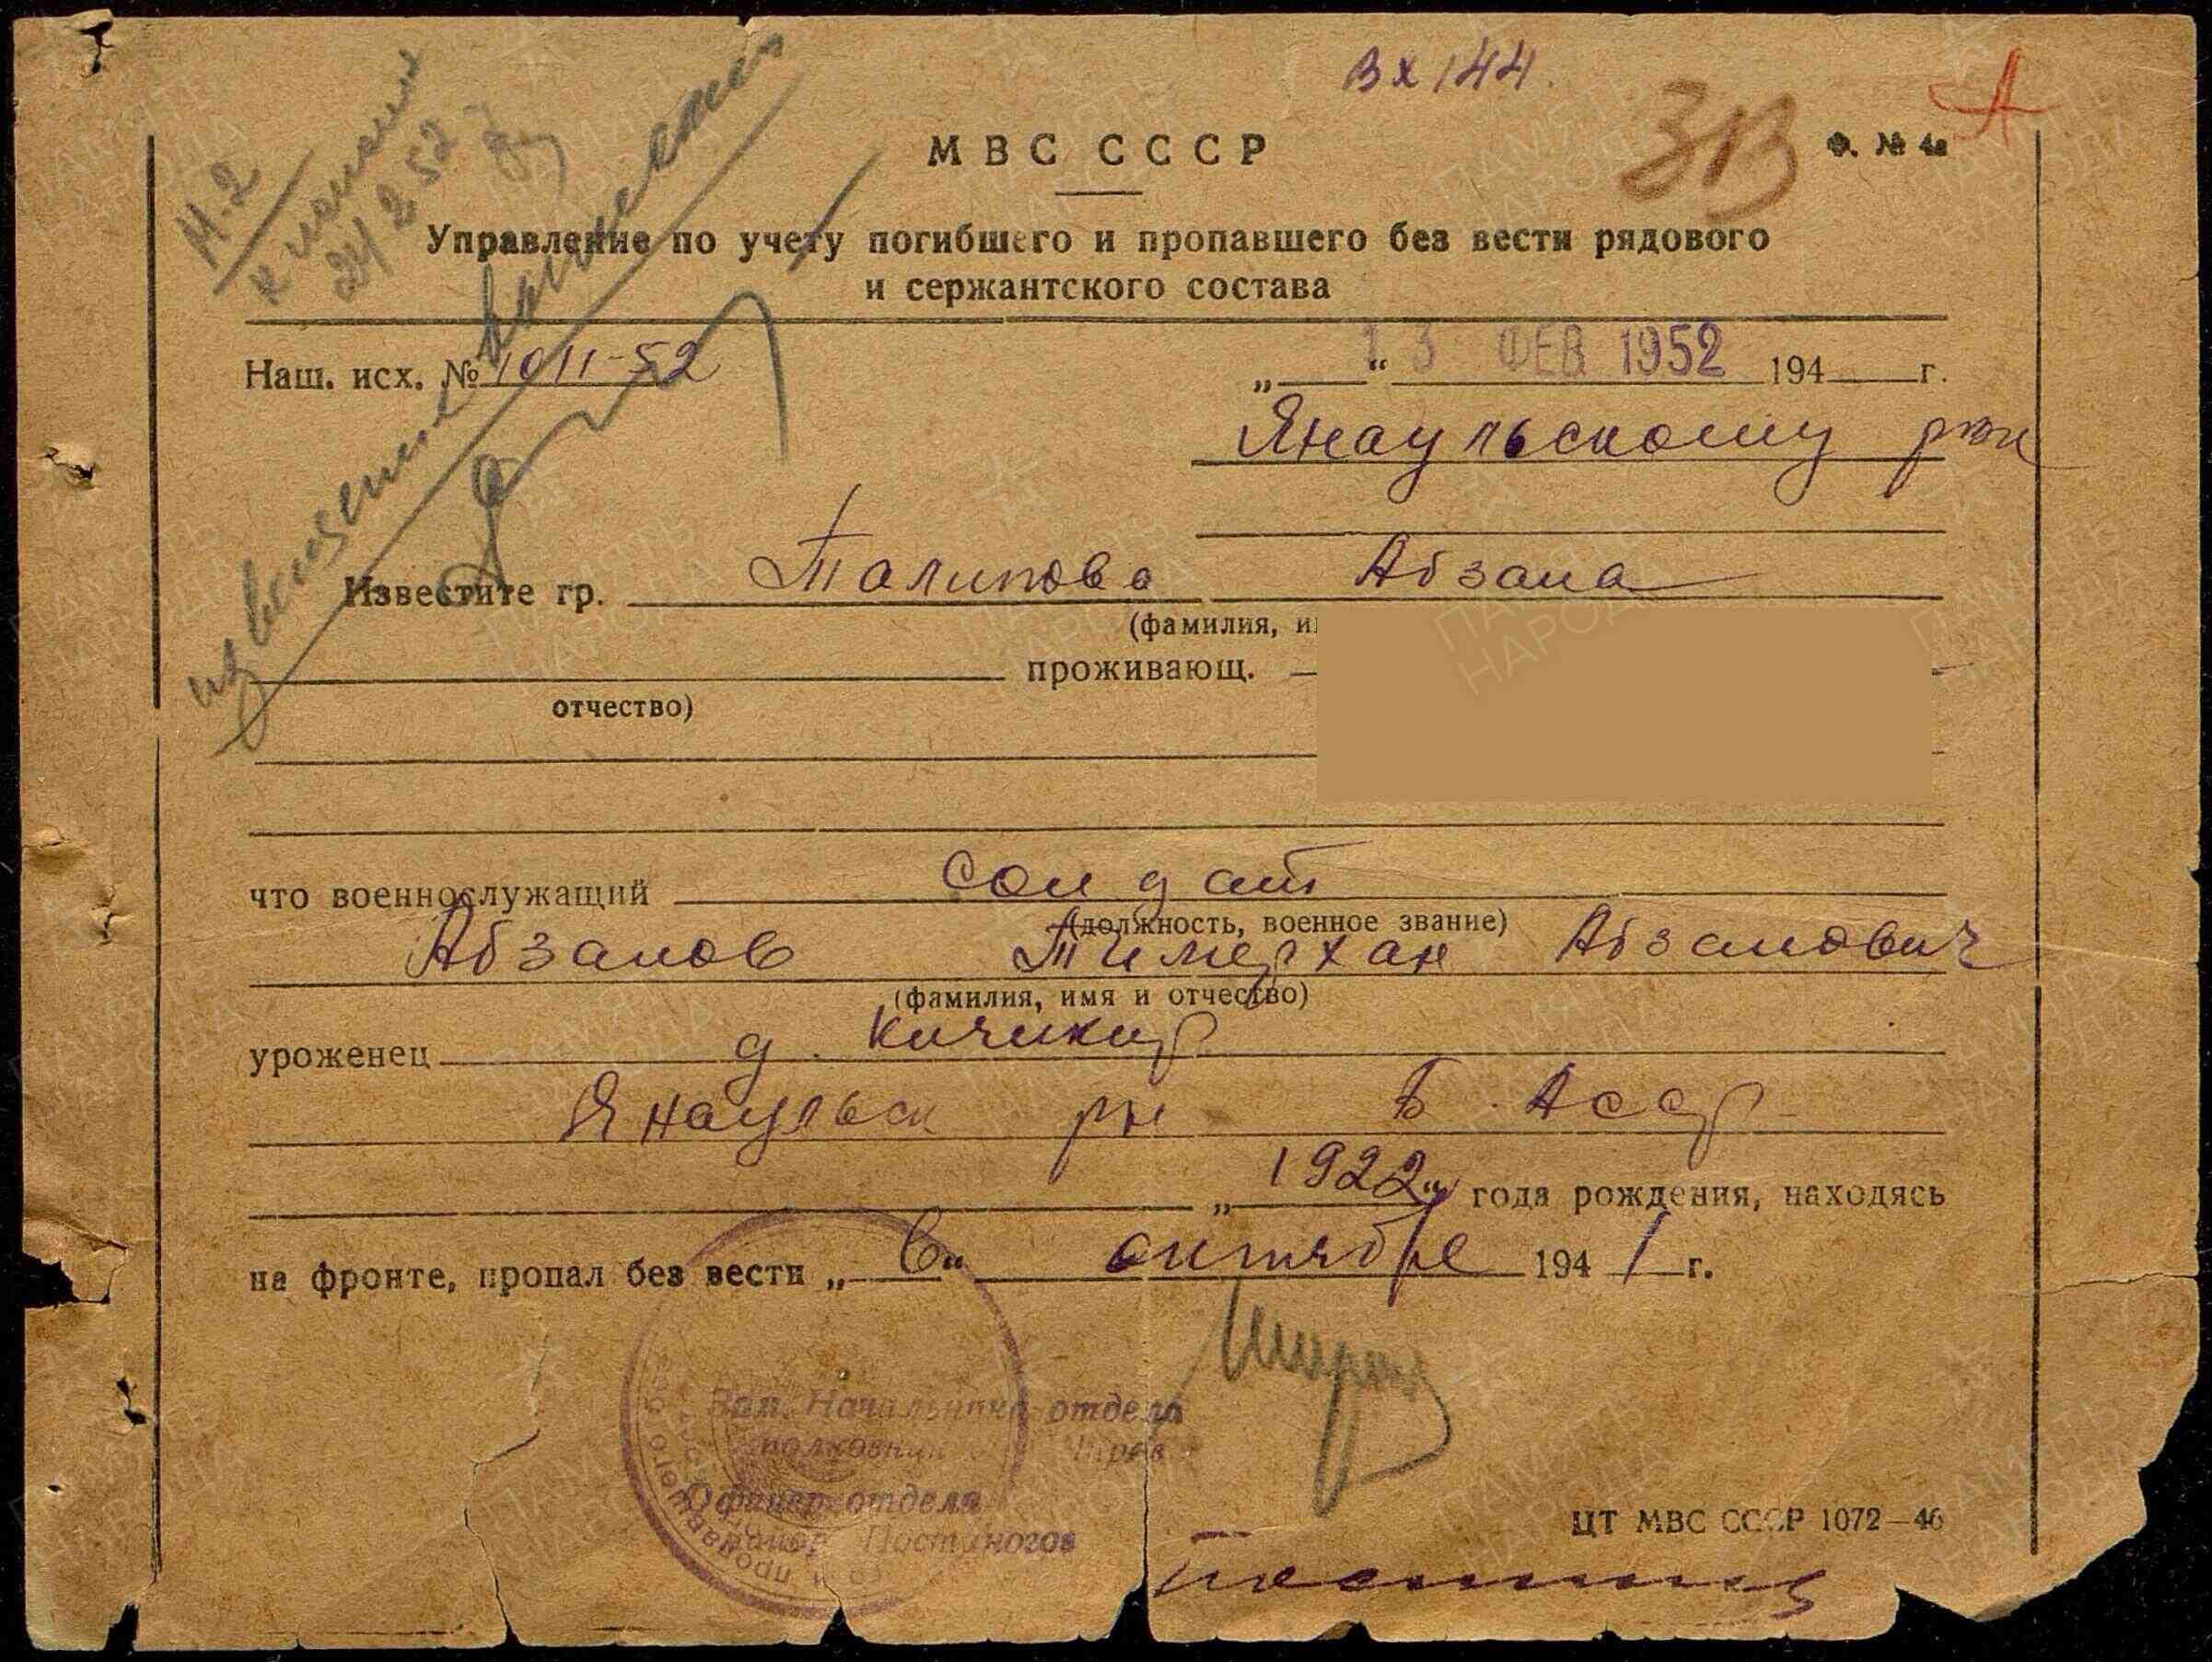 Вх 144.
313
А
М В С С С С Р
Ф. № 4а
М-2
Управление по учету погибшего и пропавшего без вести рядового
и сержантского состава
извещение выписано
Наш. исх. № 1011-52
„ “ 13 ФЕВ 1952 194 г.
Янаульскому рвк
Известите гр. Талипова Абзала
(фамилия,
проживающ.
отчество)
что военнослужащий солдат
(должность, военное звание)
Абзалов Тимерхан Абзалович
(фамилия, имя и отчество)
уроженец д. Кичикир
Янаульск рн Б. Асср
„1922“ года рождения, находясь
на фронте, пропал без вести „в“ октябре 1941 г.
Зам. Начальника отдела
полковник
Офицер отдела
майор Постаногов
ЦТ МВС СССР 1072—46